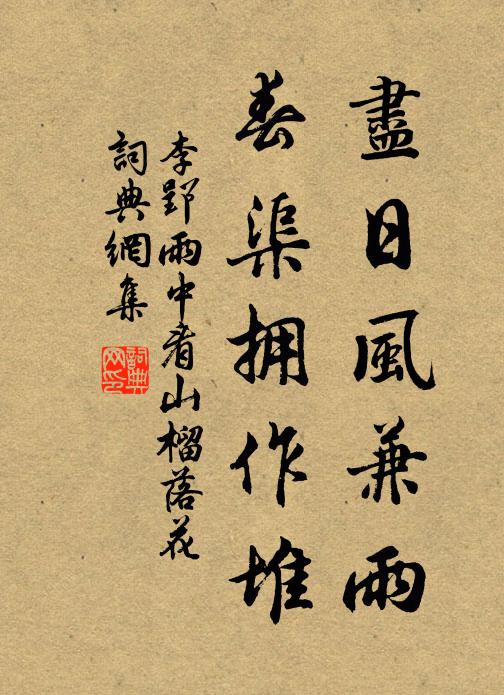 盡日風兼雨
春渠拥作堆
李郢雨中看山榴落花
詞典網集
詞典網印